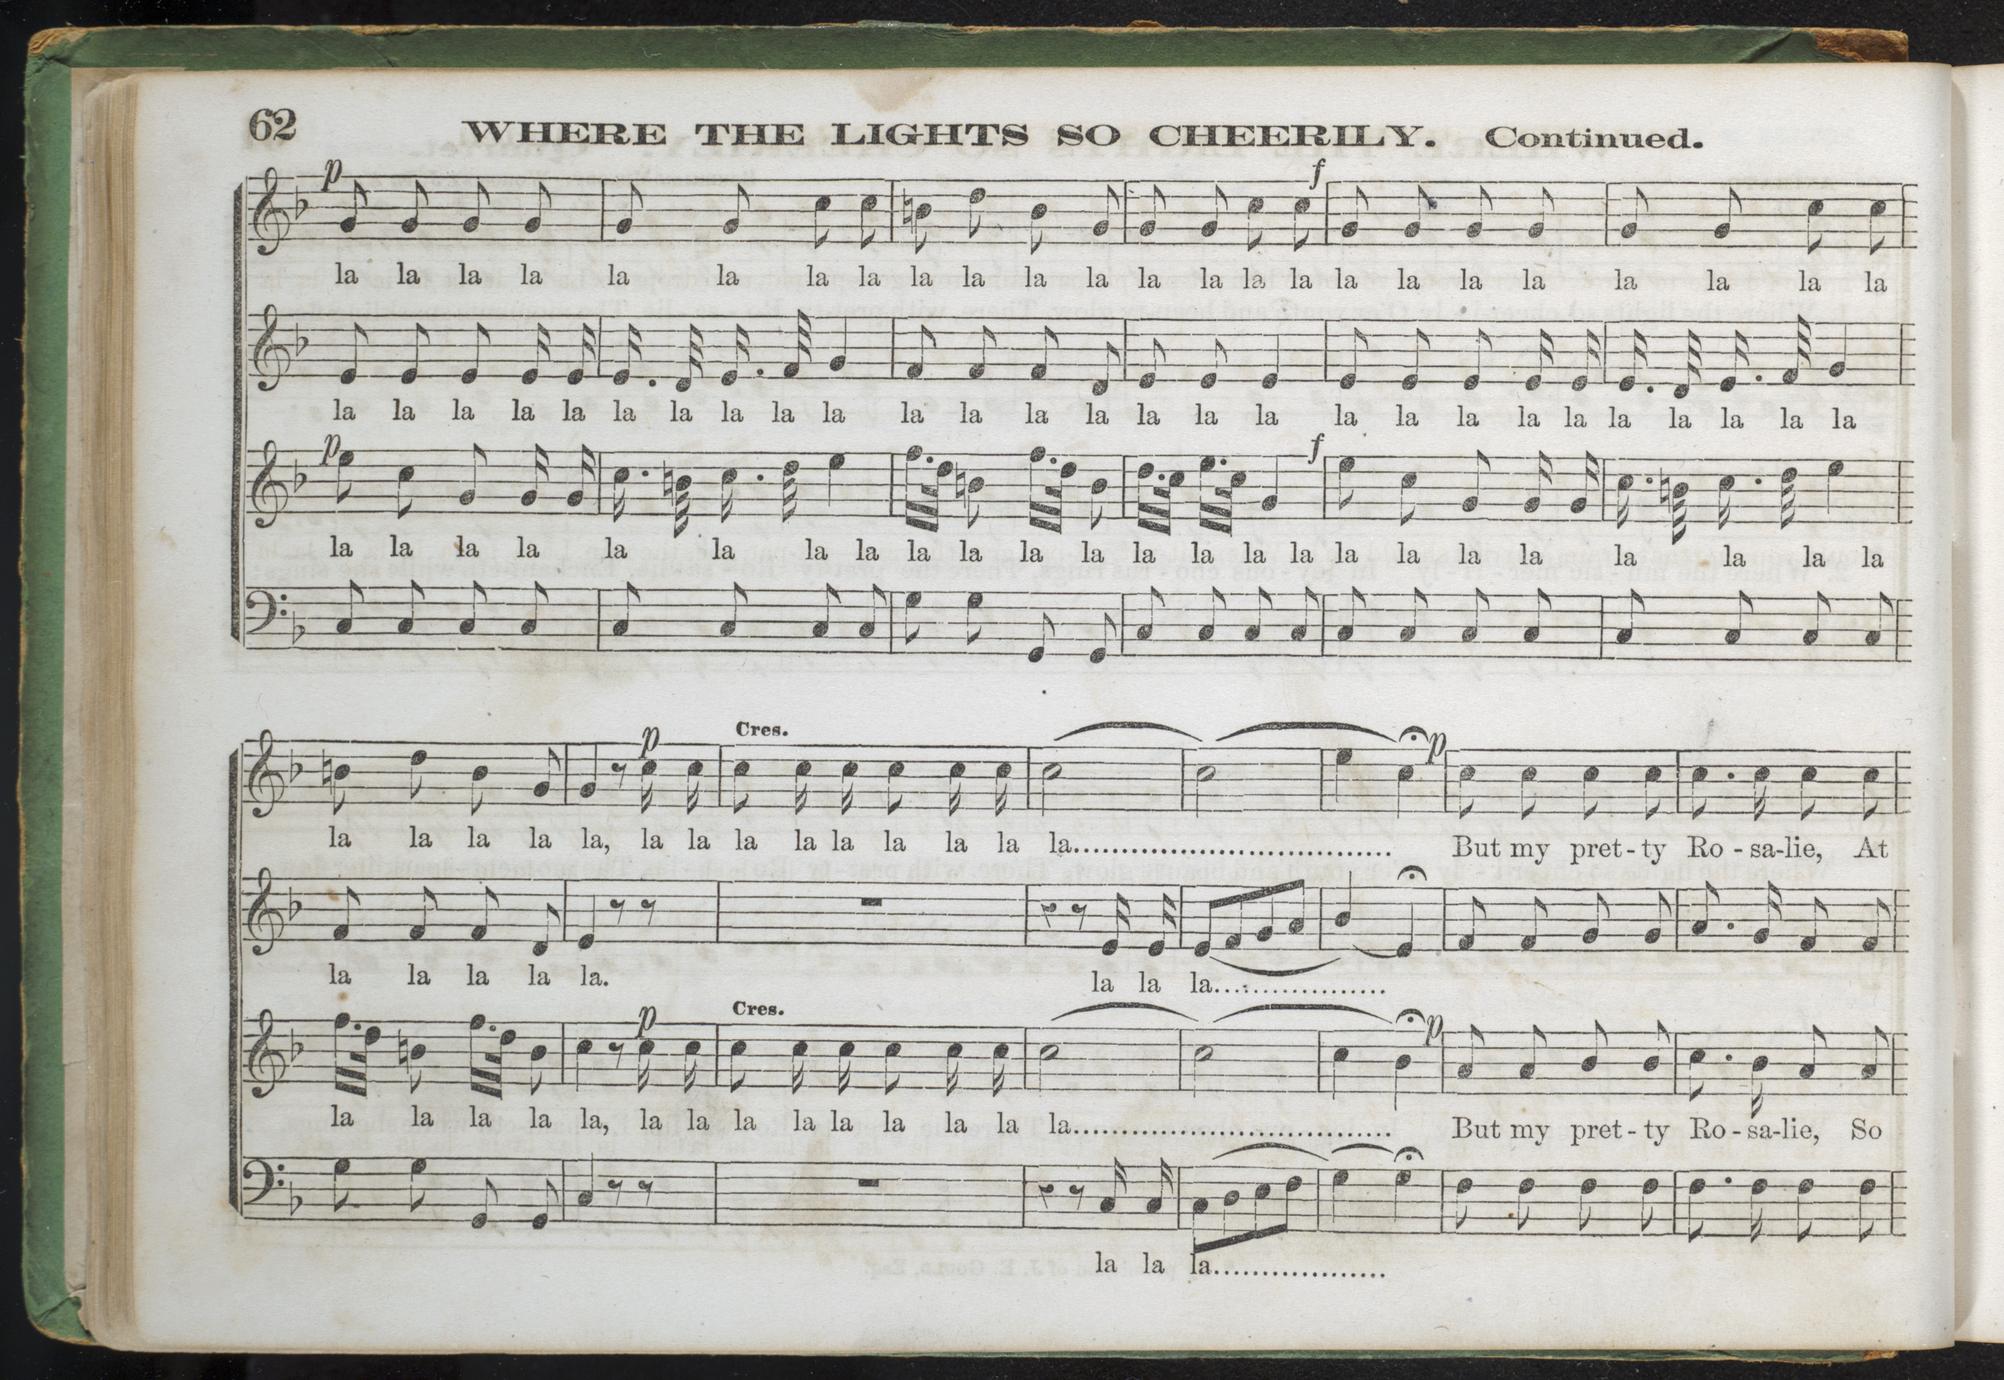 62 WHERE THE LIGHTS SO CHEERILY. Continued.
p f
la la la la la la la la la la la la la la la la la la la la la la la la
la la la la la la la la la la la la la la la la la la la la la la la la la la la
p f
la la la la la la la la la la la la la la la la la la la la la la la la
Cres.
p p
la la la la la, la la la la la la la la la................................. But my pret-ty Ro-sa-lie, At
la la la la la. la la la..................
Cres.
p p
la la la la la, la la la la la la la la la................................. But my pret-ty Ro-sa-lie, So
la la la..................